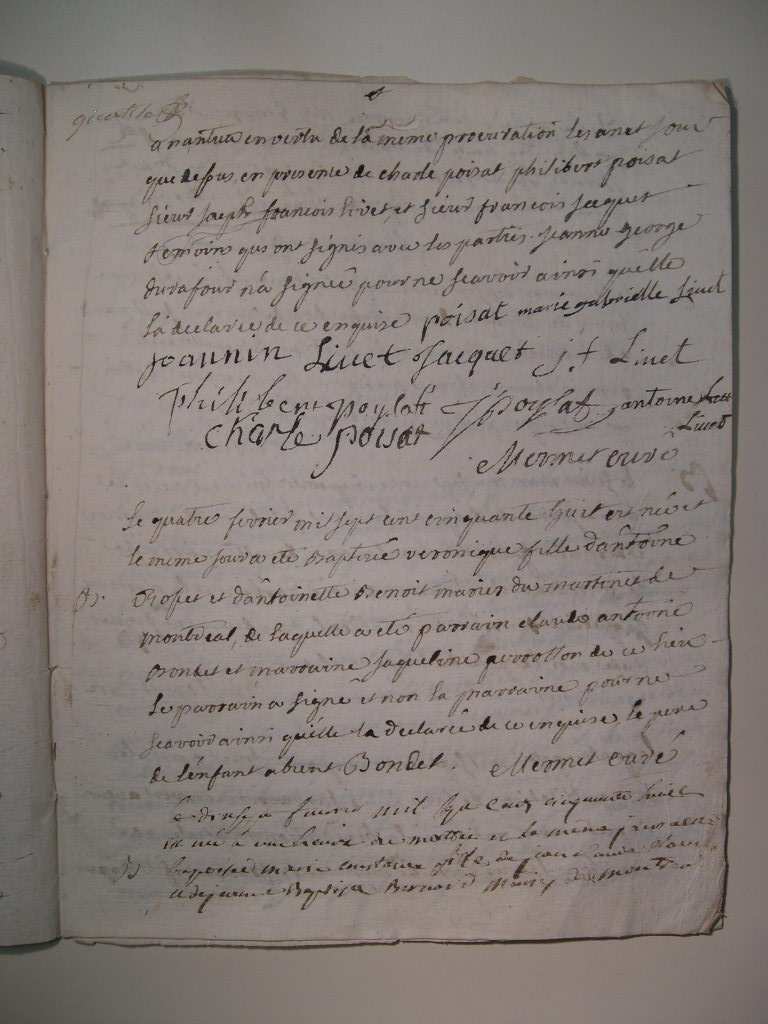 a nantua en vertu de la meme procuration les an et jour
que dessus en presence de charle poisat philibert poisat
sieur Joseph francois livet, et sieur francois jacquet
temoins qui ont signés avec les parties. jeanne george
durafour n'a signeé pour ne scavoir ainsi qu'elle
la declareé de ce enquise poisat marie gabrielle Livet
joannin Livet Jacquet j. f. Livet
philibert poysat j poysat antoine
charle poisat Livet
Mermet curé
Le quatre fevrier mil sept cent cinquante huit est neé et
le meme jour a eté baptiseé veronique fille d'antoine
B. Rosset et d'antoinette Benoit mariés du martinet de
montreal, de laquelle a eté parrain claude antoine
Bondet et marraine jaqueline perrotton de ce lieu
Le parrain a signé et non la marraine pour ne
scavoir ainsi qu'elle la declareé de ce enquise le pere
de l'enfant absent Bondet. Mermet curé
fevrier mil sept cent cinquante huit
est né à une heure de et le même jour a eté
B) baptisée marie fille de jean claude
et de jeanne Baptiste Bernard mariés de montreal